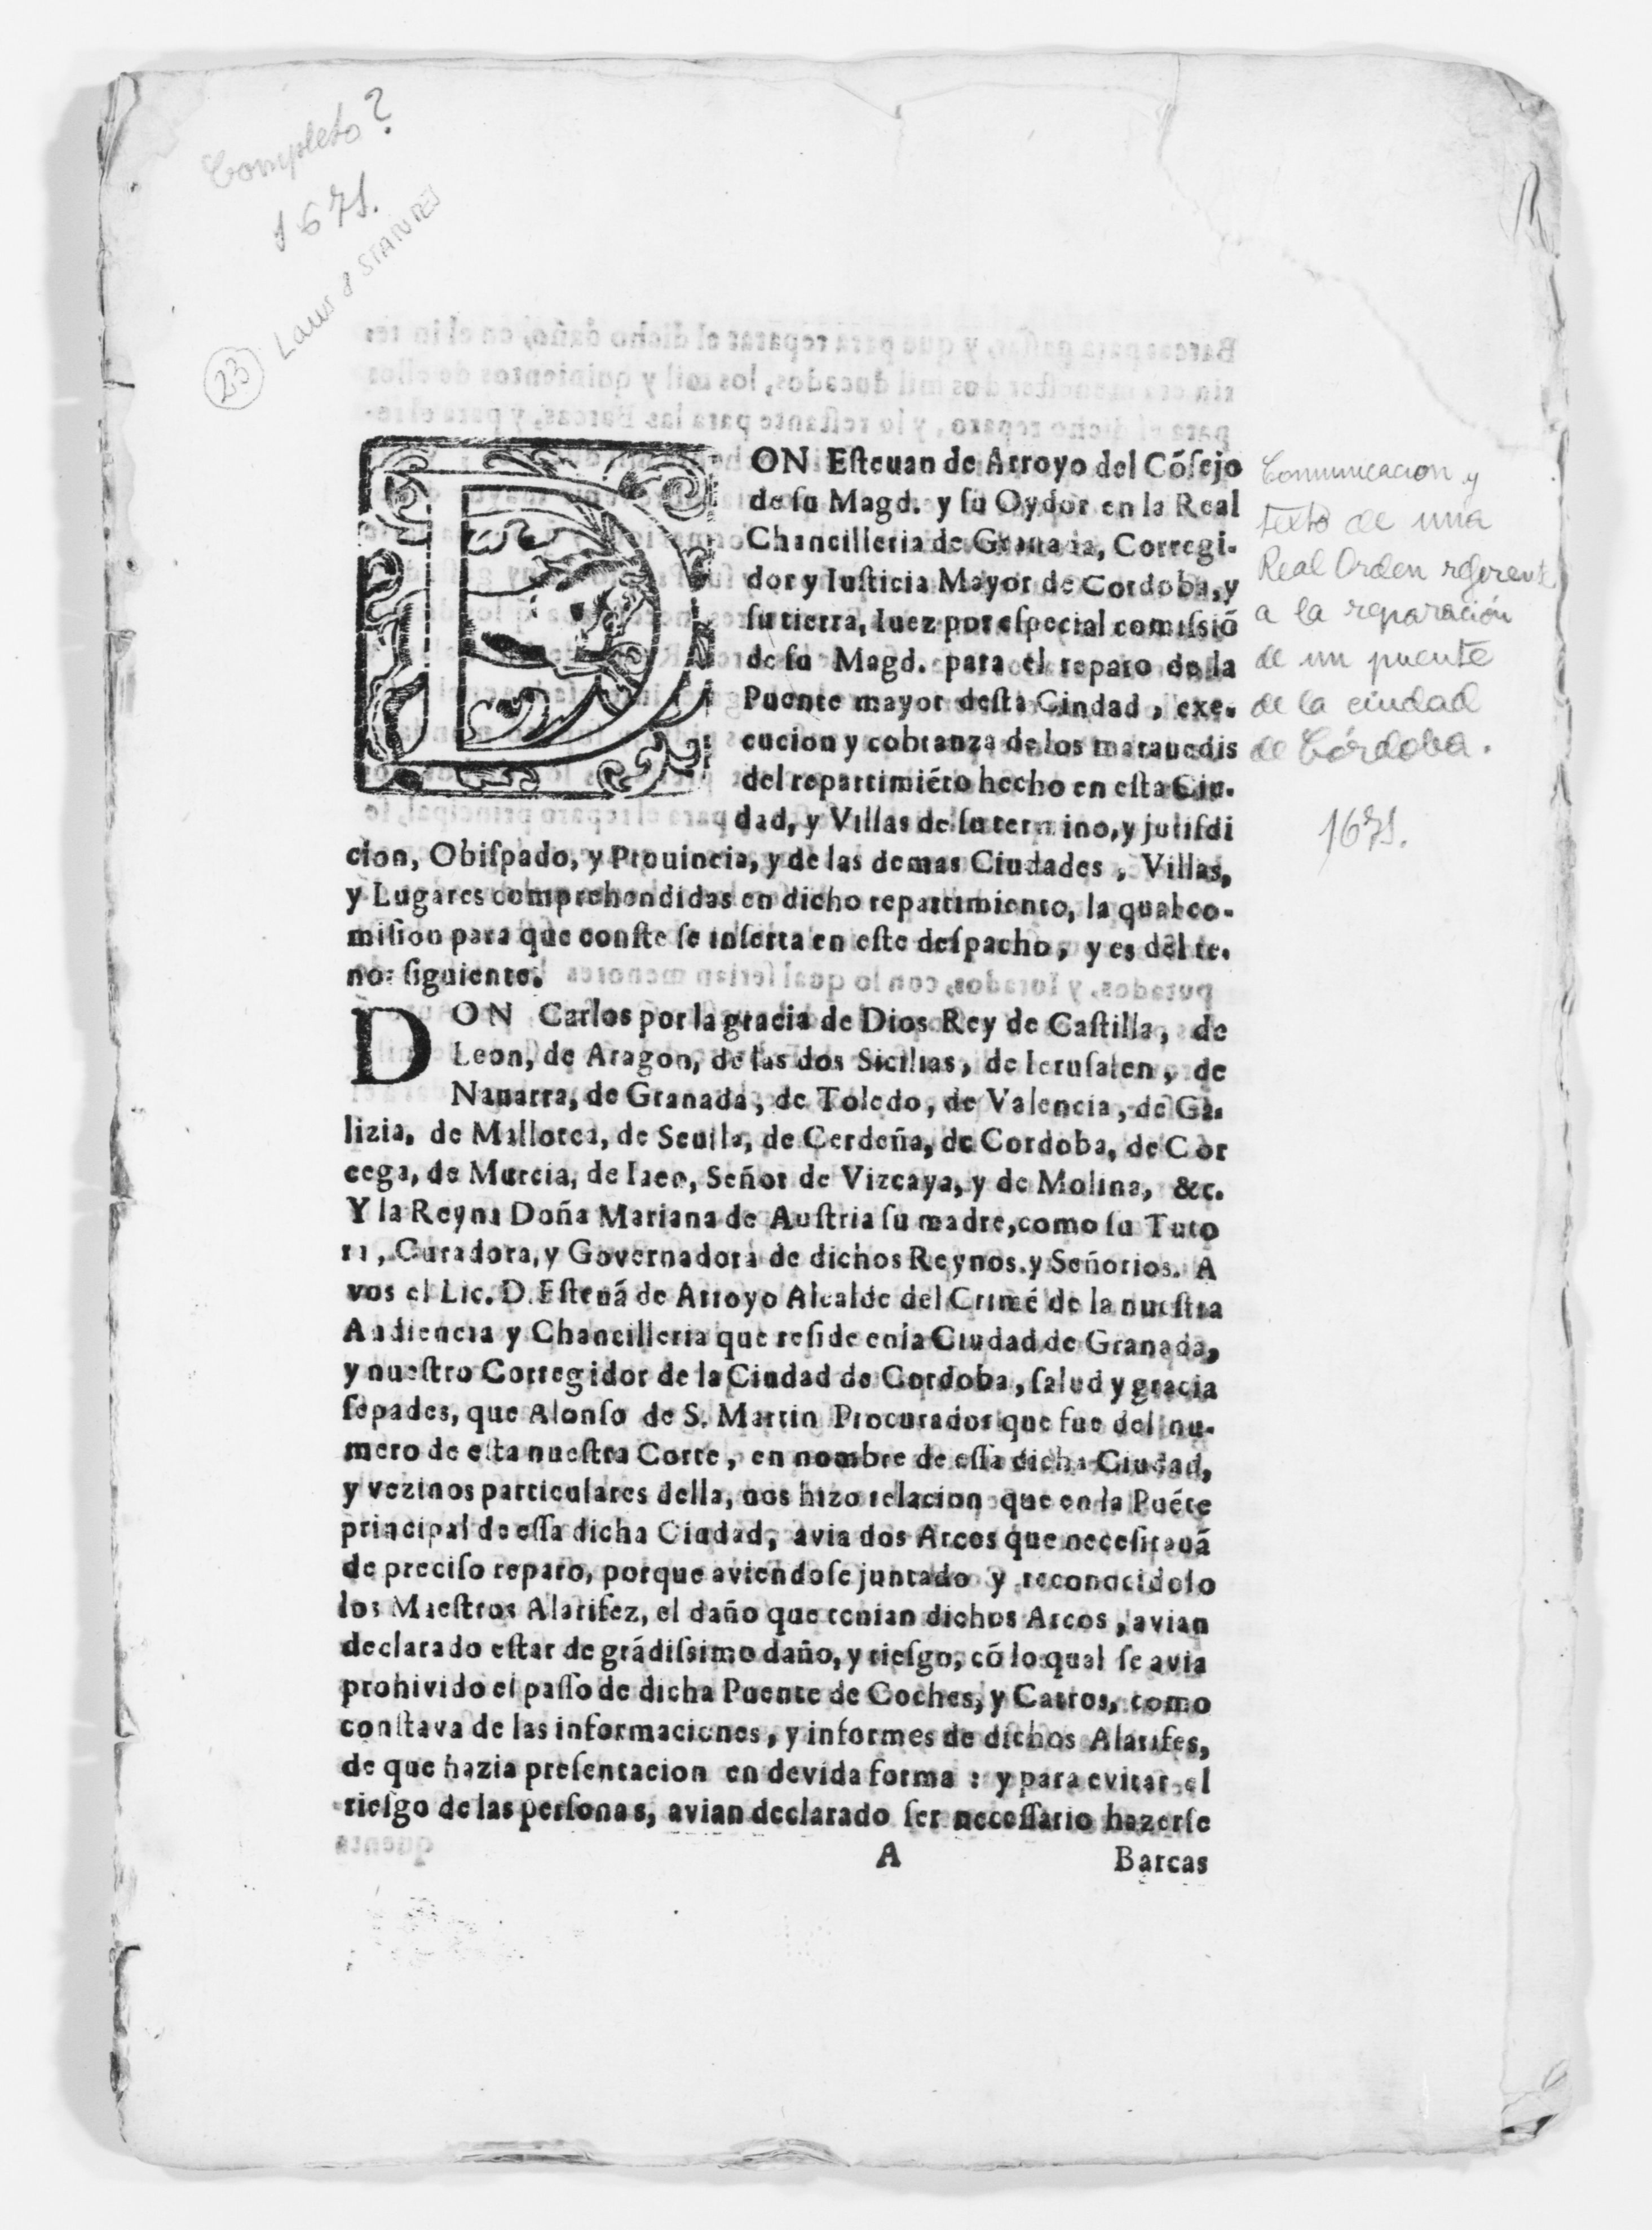 Completo?
1671.
23 Laws & STATUTES
DON Esteuan de Arroyo del Cõsejo
de su Magd. y su Oydor en la Real
Chancilleria de Granada, Corregi-
dor y Iusticia Mayor de Cordoba, y
su tierra, Iuez por especial comissiõ
de su Magd. para el reparo de la
Puente mayor desta Ciudad, exe-
cucion y cobranza de los marauedis
del repartimiẽto hecho en esta Ciu-
dad, y Villas de su termino, y jurisdi
cion, Obispado, y Prouincia, y de las demas Ciudades, Villas,
y Lugares comprehendidas en dicho repartimiento, la qual co-
mision para que conste se inserta en este despacho, y es del te-
nor siguiente.
DON Carlos por la gracia de Dios Rey de Castilla, de
Leon, de Aragon, de las dos Sicilias, de Ierusalen, de
Nauarra, de Granada, de Toledo, de Valencia, de Ga-
lizia, de Mallorca, de Seuilla, de Cerdeña, de Cordoba, de Cor
cega, de Murcia, de Iaen, Señor de Vizcaya, y de Molina, &c.
Y la Reyna Doña Mariana de Austria su madre, como su Tuto
ra, Curadora, y Governadora de dichos Reynos, y Señorios. A
vos el Lic. D. Esteuã de Arroyo Alcalde del Crimẽ de la nuestra
Audiencia y Chancilleria que reside en la Ciudad de Granada,
y nuestro Corregidor de la Ciudad de Cordoba, salud y gracia
sepades, que Alonso de S. Martin Procurador que fue del nu-
mero de esta nuestra Corte, en nombre de essa dicha Ciudad,
y vezinos particulares della, nos hizo relacion que en la Puẽte
principal de essa dicha Ciudad, avia dos Arcos que necesitauã
de preciso reparo, porque aviendose juntado y reconocidolo
los Maestros Alarifez, el daño que tenian dichos Arcos, avian
declarado estar de grãdissimo daño, y riesgo, cõ lo qual se avia
prohivido el passo de dicha Puente de Coches, y Carros, como
constava de las informaciones, y informes de dichos Alarifes,
de que hazia presentacion en devida forma : y para evitar el
riesgo de las personas, avian declarado ser necessario hazerse
A Barcas
Comunicacion y
texto de una
Real Orden referente
a la reparación
de un puente
de la ciudad
de Córdoba.
1671.